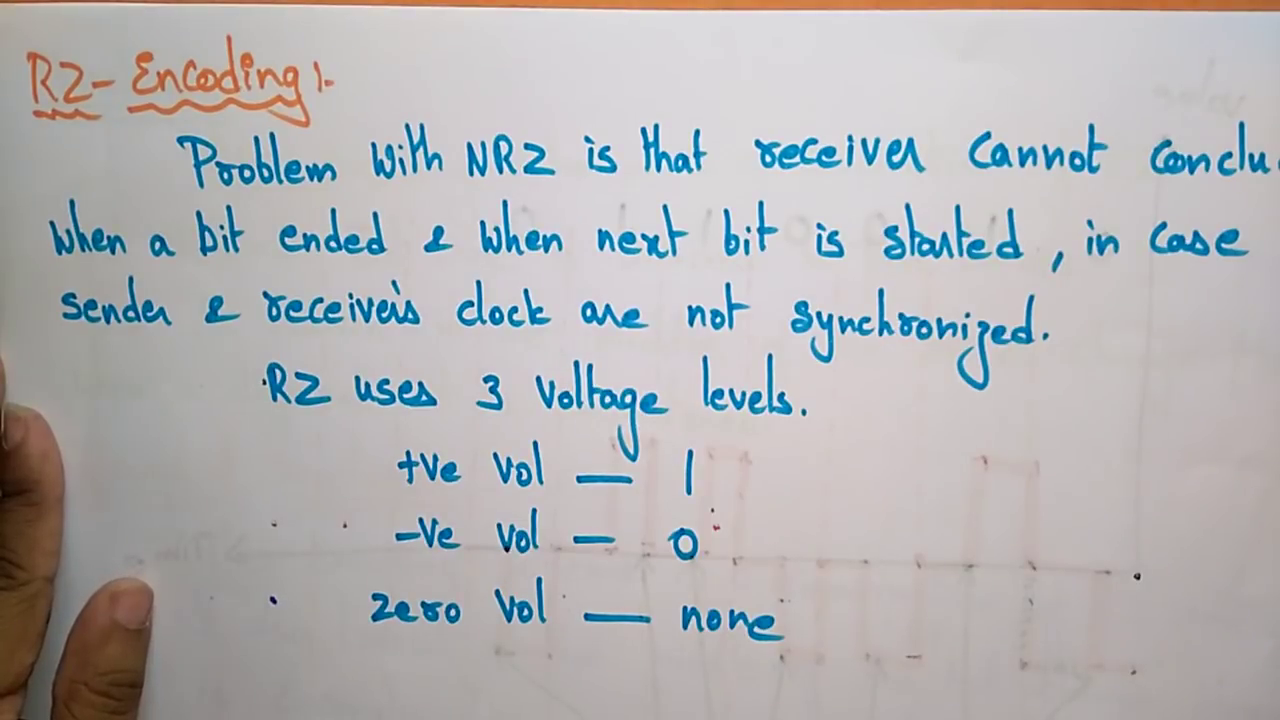 RZ- Encoding :-
Problem with NRZ is that receiver cannot conclu
when a bit ended & when next bit is started, in case
sender & receiver's clock are not synchronized.
RZ uses 3 voltage levels.
+ve vol — 1
-ve vol — 0
zero vol — none